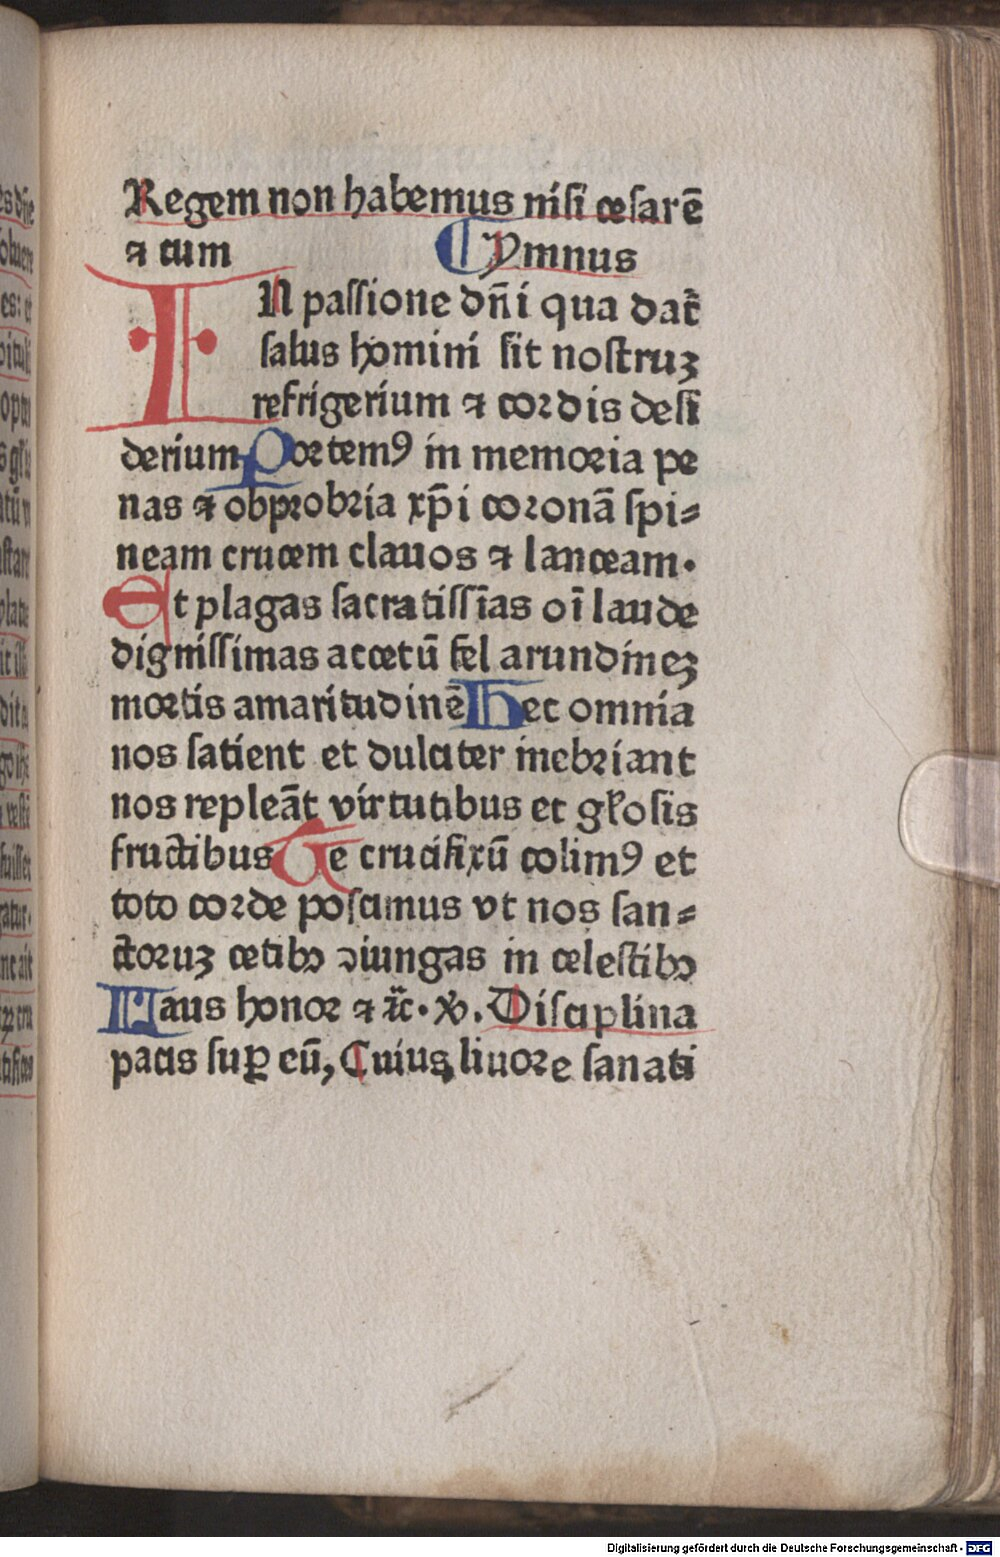 Regem non habemus nisi cesarē
⁊ cum ¶ Ymnus
IN passione dn̄i qua dat̄
salus homini sit nostruꝫ
refrigerium ⁊ cordis desi
derium Portemꝰ in memoria pe
nas ⁊ obprobria xp̄i coronā spi⸗
neam crucem clauos ⁊ lanceam.
Et plagas sacratissīas oī laude
dignissimas acetū fel arundineꝫ
mortis amaritudinē Hec omnia
nos satient et dulciter inebriant
nos repleāt virtutibus et gl̄osis
fructibus Te crucifixū colimꝰ et
toto corde poscimus vt nos san⸗
ctoruꝫ cetibꝫ ↄiungas in celestibꝫ
Laus honor ⁊ ⁊c̄. ℣. Disciplina
pacis suꝑ eū, Cuius liuore sanati
Digitalisierung gefördert durch die Deutsche Forschungsgemeinschaft - DFG